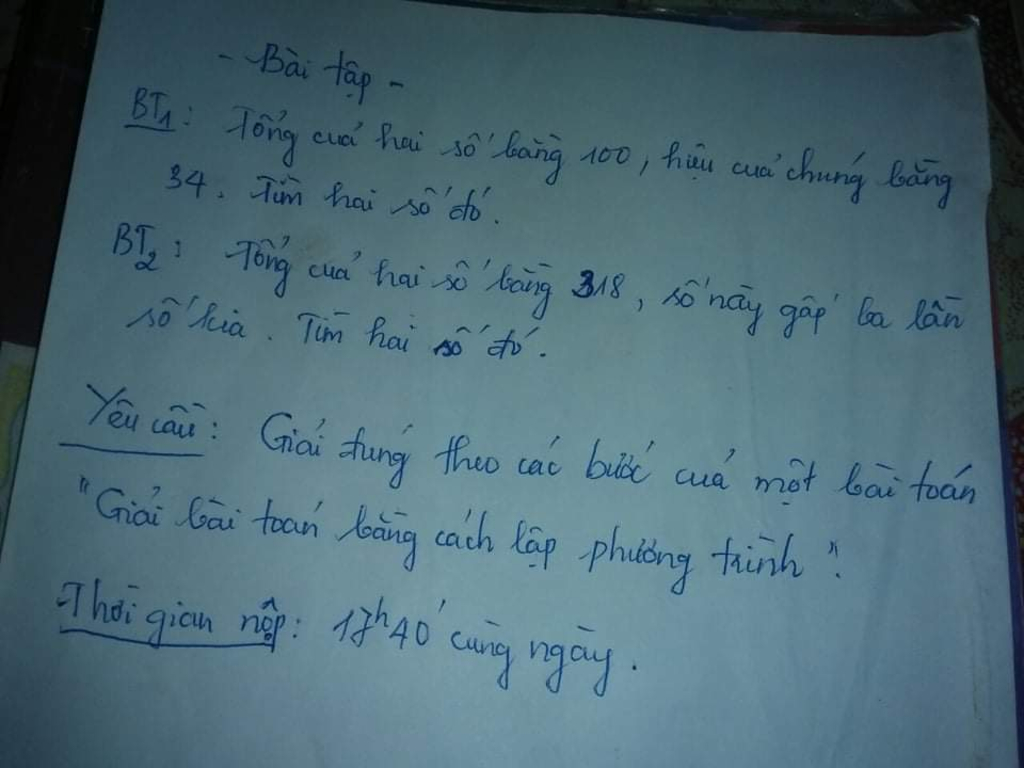 - Bài tập -
BT1: Tổng của hai số bằng 100, hiệu của chúng bằng
34. Tìm hai số đó.
BT2: Tổng của hai số bằng 318, số này gấp ba lần
số kia. Tìm hai số đó.
Yêu cầu: Giải đúng theo các bước của một bài toán
"Giải bài toán bằng cách lập phương trình".
Thời gian nộp: 17h40' cùng ngày.